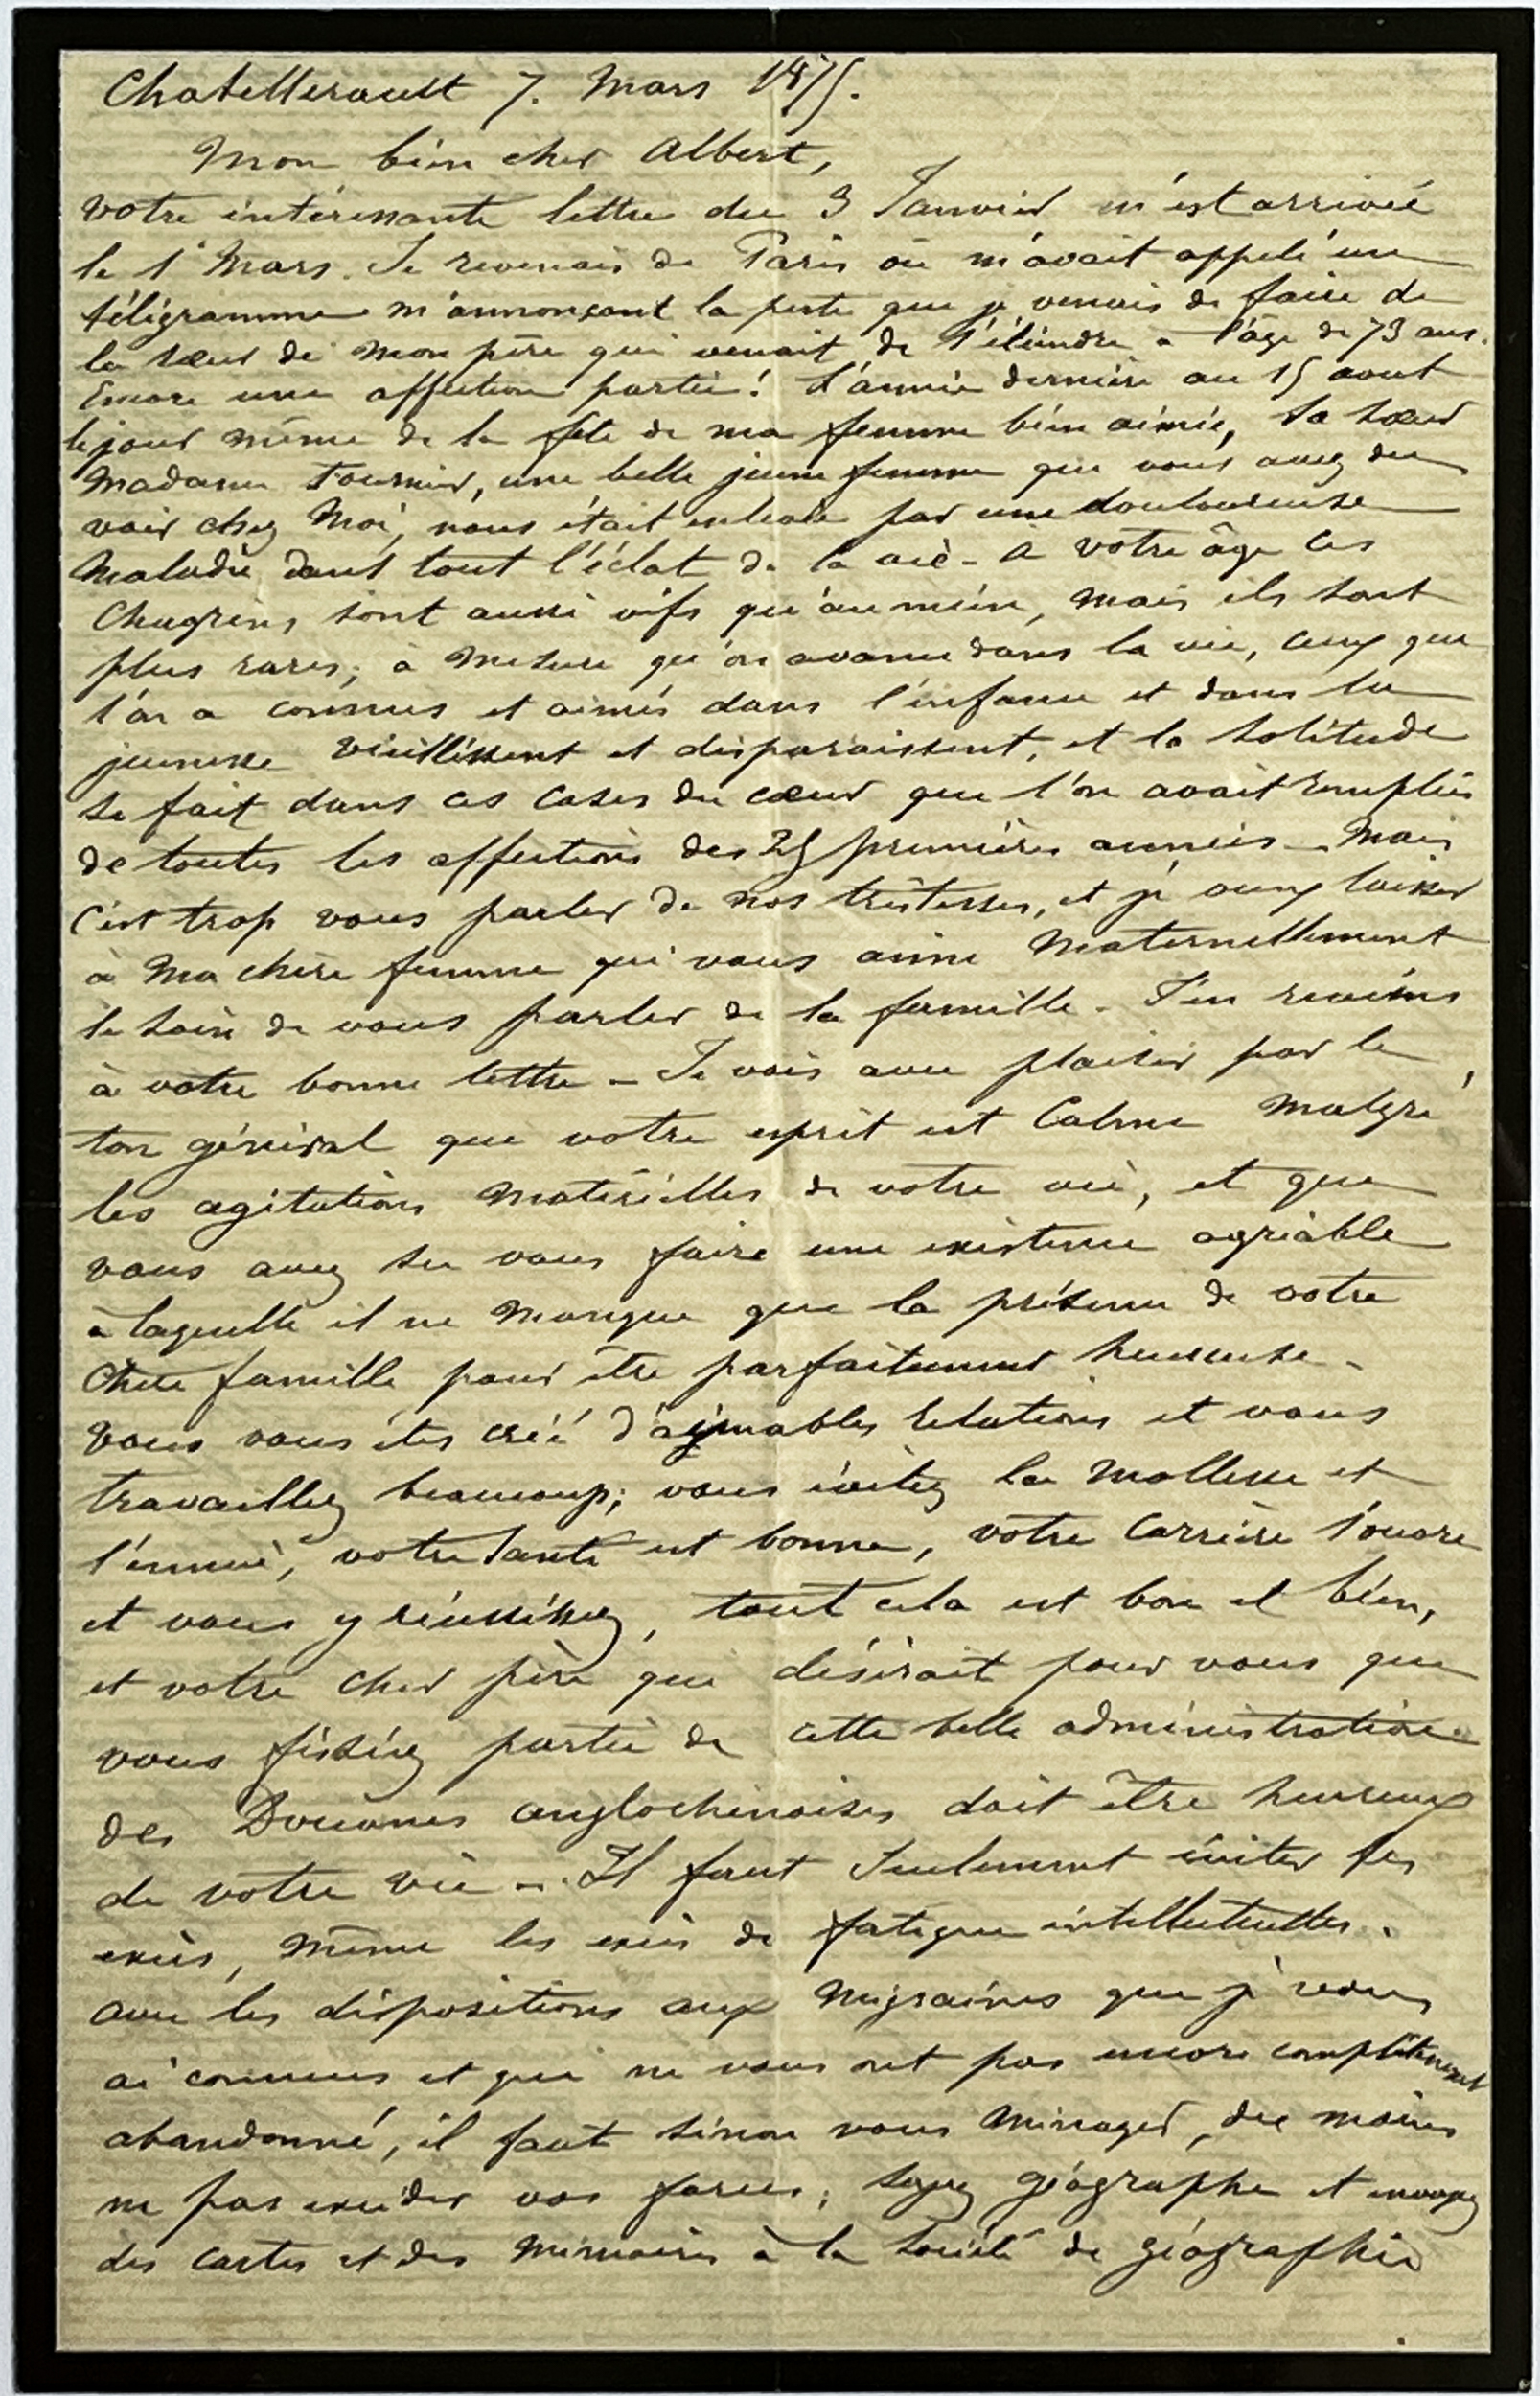 Chatellerault 7. Mars 1875.
Mon bien cher Albert,
votre intéressante lettre du 3 Janvier m'est arrivée
le 1er Mars. Je revenais de Paris où m'avait appelé un
télégramme m'annonçant la perte que je venais de faire de
la sœur de mon père qui venait de s'éteindre à l'âge de 73 ans.
Encore une affection partie! L'année dernière au 15 aout
le jour même de la fête de ma femme bien aimée, sa sœur
Madame Fournier, une belle jeune femme que vous avez du
voir chez moi, nous était enlevée par une douloureuse
maladie dans tout l'éclat de la vie - à votre âge ces
chagrins sont aussi vifs qu'au mien, mais ils sont
plus rares; à mesure qu'on avance dans la vie, ceux que
l'on a connus et aimés dans l'enfance et dans la
jeunesse vieillissent et disparaissent, et la solitude
se fait dans ces cases du cœur que l'on avait remplies
de toutes les affections des 25 premières années - Mais
c'est trop vous parler de nos tristesses, et je veux laisser
à ma chère femme qui vous aime maternellement
le soin de vous parler de la famille - J'en reviens
à votre bonne lettre - Je vois avec plaisir par le
ton général que votre esprit est calme malgré
les agitations matérielles de votre vie, et que
vous avez su vous faire une existence agréable
à laquelle il ne manque que la présence de votre
chère famille pour être parfaitement heureuse -
vous vous êtes créé d'aimables relations et vous
travaillez beaucoup; vous évitez la mollesse et
l'ennui, votre santé est bonne, votre carrière s'ouvre
et vous y réussissez, tout cela est bon et bien,
et votre cher père qui désirait pour vous que
vous fissiez partie de cette belle administration
des Douanes anglochinoises doit être heureux
de votre vie -. Il faut seulement éviter les
excès, même les excès de fatigue intellectuelles.
avec les dispositions aux migraines que je vous
ai connues et qui ne vous ont pas encore complètement
abandonné, il faut sinon vous ménager, du moins
ne pas excéder vos forces; soyez géographe et envoyez
des cartes et des mémoires à la Société de géographie